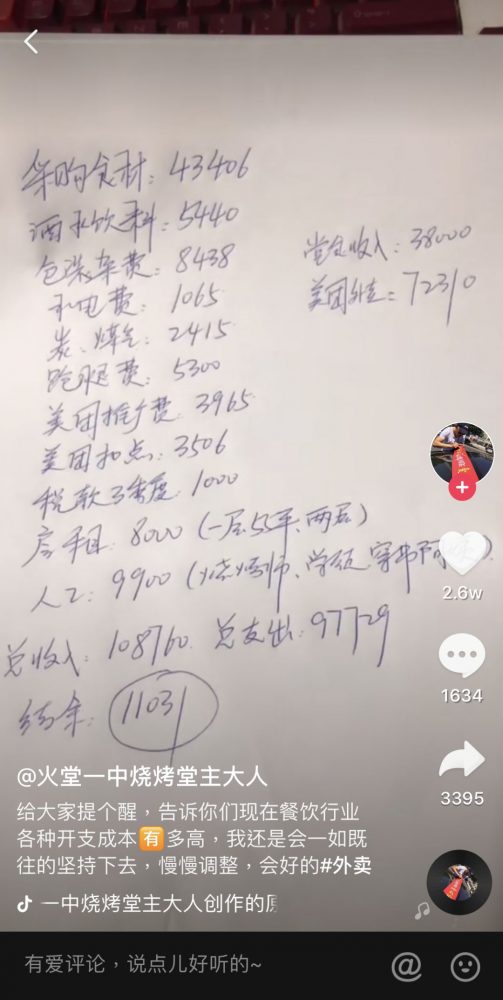 采购食材：43406
酒水饮料：5440
包装杂费：8438
水电费：1065
炭、煤气：2415
跑腿费：5300
美团推广费：3965
美团扣点：3506
税款3季度：1000
房租：8000（一层55平、两层）
人工：9900（烧烤师、学徒、穿串阿姨）
堂食收入：38000
美团外卖：72310
总收入：108760 总支出：97729
结余：11031
2.6w
1634
3395
@火堂一中烧烤堂主大人
给大家提个醒，告诉你们现在餐饮行业
各种开支成本🈶多高，我还是会一如既
往的坚持下去，慢慢调整，会好的#外卖
一中烧烤堂主大人创作的
有爱评论，说点儿好听的~